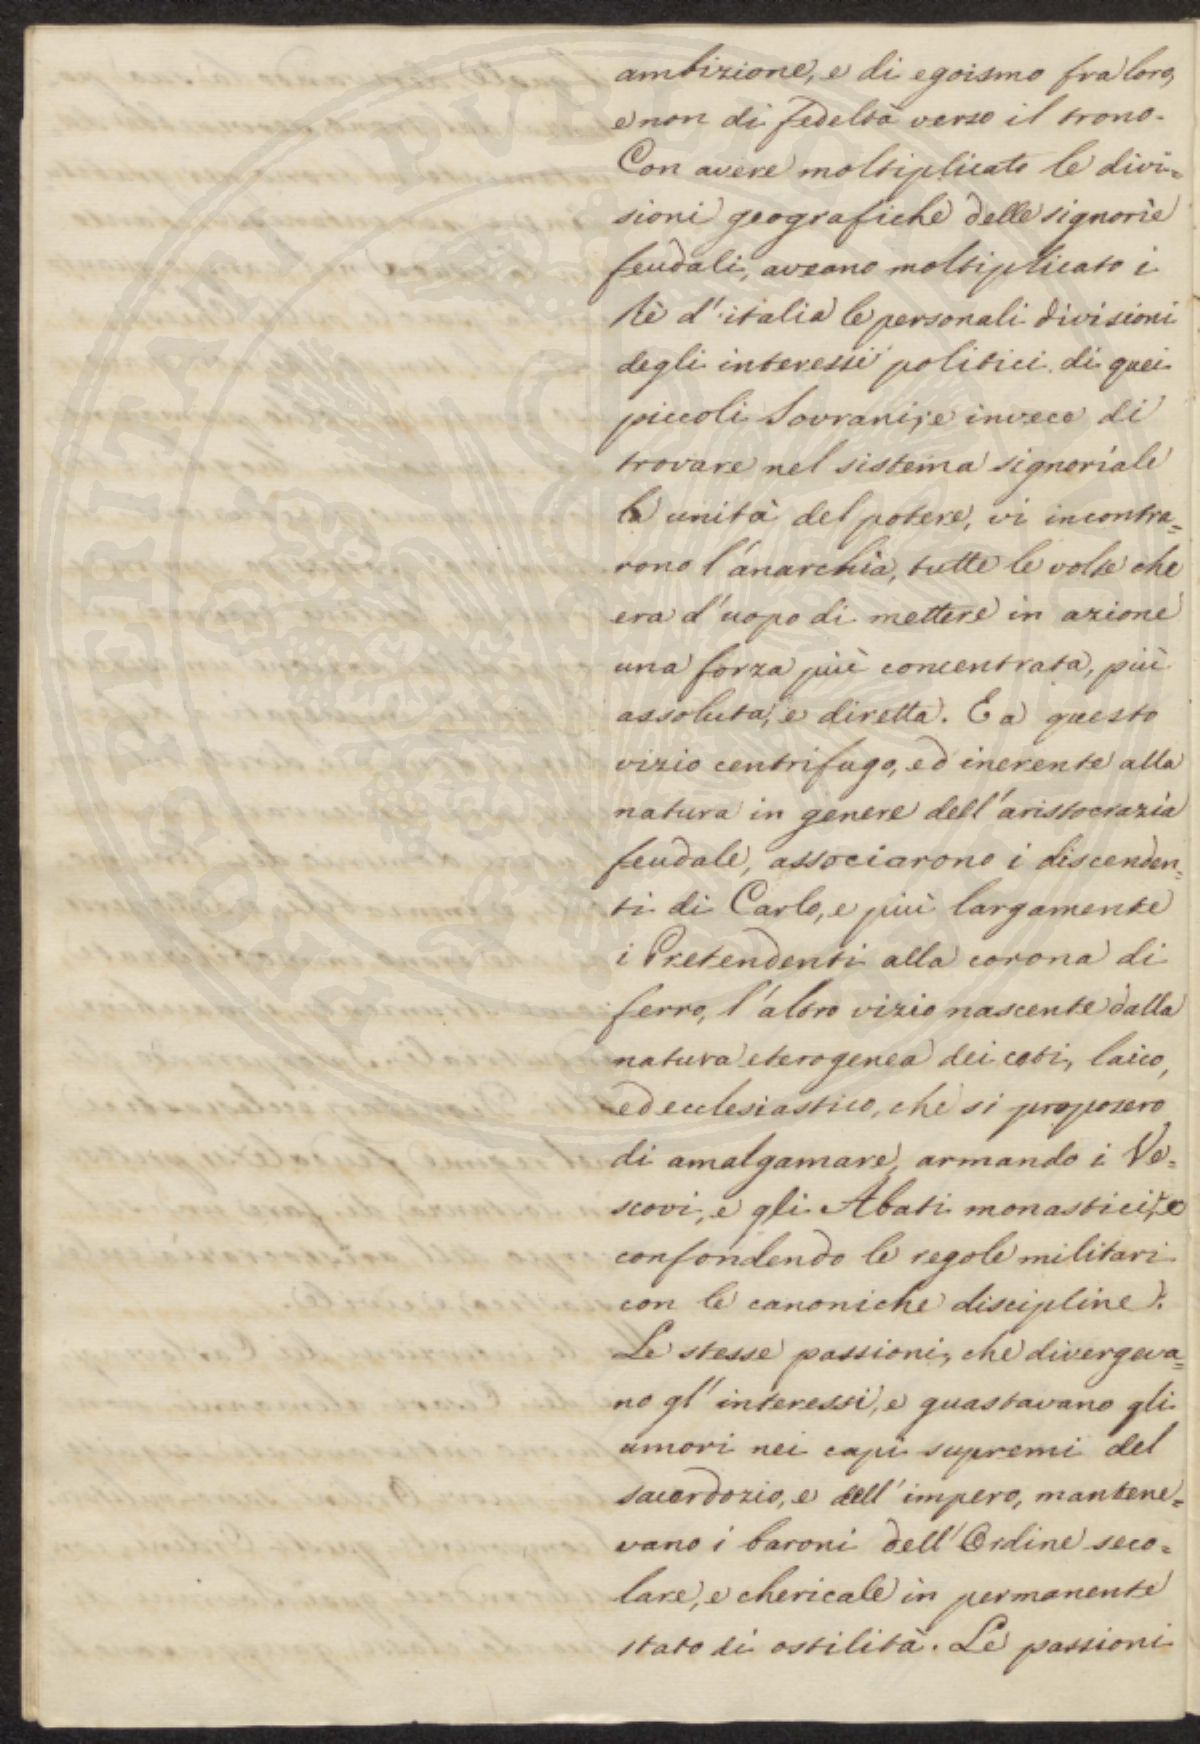 ambizione, e di egoismo fra loro,
e non di fedeltà verso il trono.
Con avere moltiplicato le divi=
sioni geografiche delle signorie
feudali, aveano moltiplicato i
Rè d'italia le personali divisioni
degli interessi politici di quei
piccoli Sovrani; e invece di
trovare nel sistema signoriale
la unità del potere, vi incontra=
rono l'anarchia, tutte le volte che
era d'uopo di mettere in azione
una forza più concentrata, più
assoluta, e diretta. E a questo
vizio centrifugo, ed inerente alla
natura in genere dell'aristocrazia
feudale, associarono i discenden=
ti di Carlo, e più largamente
i Pretendenti alla corona di
ferro, l'altro vizio nascente dalla
natura eterogenea dei ceti, laico,
ed ecclesiastico, che si proposero
di amalgamare, armando i Ve=
scovi, e gli Abati monastici, e
confondendo le regole militari
con le canoniche discipline.
Le stesse passioni, che divergeva=
no gl'interessi, e guastavano gli
umori nei capi supremi del
sacerdozio, e dell'impero, mantene=
vano i baroni dell'Ordine seco=
lare, e chericale in permanente
stato di ostilità. Le passioni
PROSPERITATI PUBLICAE